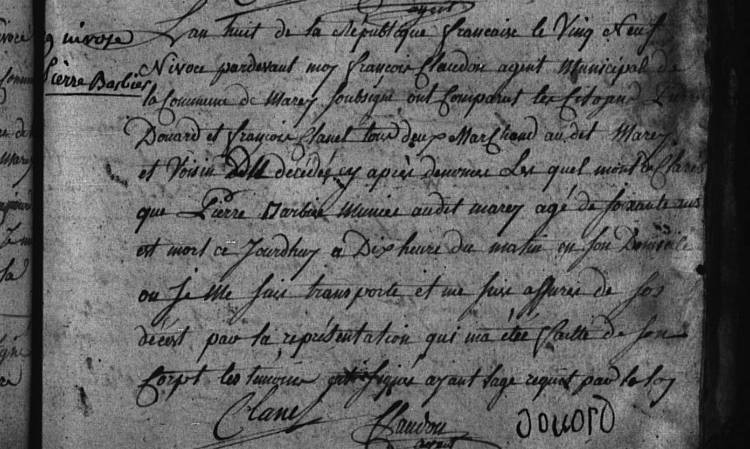 agent
9 nivose
Pierre Barbier
Lan huit de la République francaise le Vinq Neuf
Nivoce pardevant moy françois Claudon agent Municipal de
la Commune de Marey Soubsigné ont Comparut les Citoyens
Douard et françois Clanet tous deux Marchand audit Marey
et Voisin du décédés cy après denomés Les quel mont declarés
que Pierre Barbier Munier audit marey agé de soixante ans
est mort ce Jourdhuy a Dix heure du matin en son Domicile
ou Je Me suis transporte et me suis assurés de son
décest par la représentation qui ma étée faitte de son
Corpt les temoins ont signés ayant lage requit par la loy
Clanet
Claudon
agent
douard